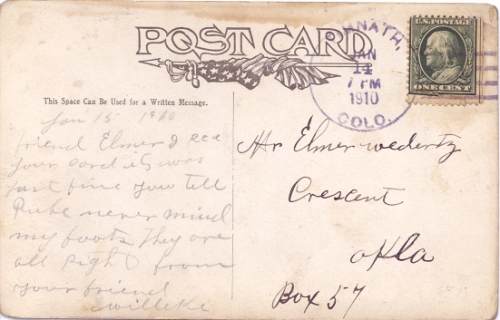 POST CARD
This Space Can Be Used for a Written Message.
Jan 15 1910
friend Elmer I rec
your card it was
just fine you tell
Rube never mind
my foots They are
all right from
your friend
NATH,
JAN
14
7 PM
1910
COLO.
U.S. POSTAGE
ONE CENT
Mr Elmer wedertz
Crescent
okla
Box 57